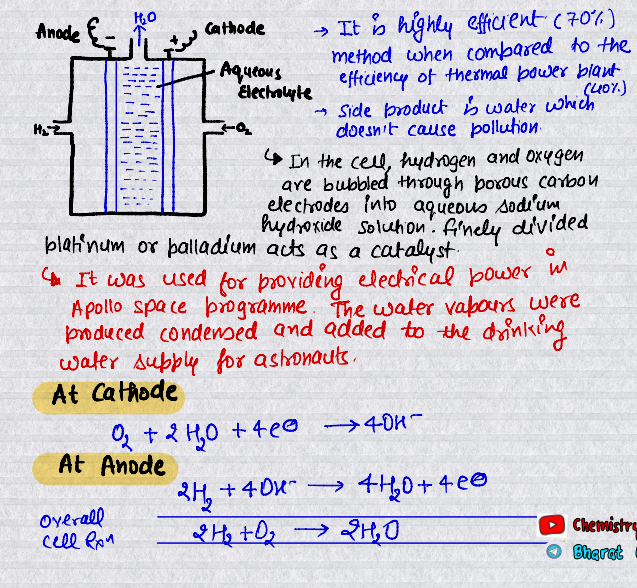 H₂O
Anode
Cathode
-
+
Aqueous
Electrolyte
H₂→
←O₂
→ It is highly efficient (70%)
method when compared to the
efficiency of thermal power plant
(40%)
→ Side product is water which
doesn't cause pollution.
↳ In the cell, hydrogen and oxygen
are bubbled through porous carbon
electrodes into aqueous sodium
hydroxide solution. finely divided
platinum or palladium acts as a catalyst.
↳ It was used for providing electrical power in
Apollo space programme. The water vapours were
produced condensed and added to the drinking
water supply for astronauts.
At Cathode
O₂ + 2H₂O + 4e⊖ → 4OH⁻
At Anode
2H₂ + 4OH⁻ → 4H₂O + 4e⊖
overall
cell Rxn
2H₂ + O₂ → 2H₂O
Chemistry
Bharat